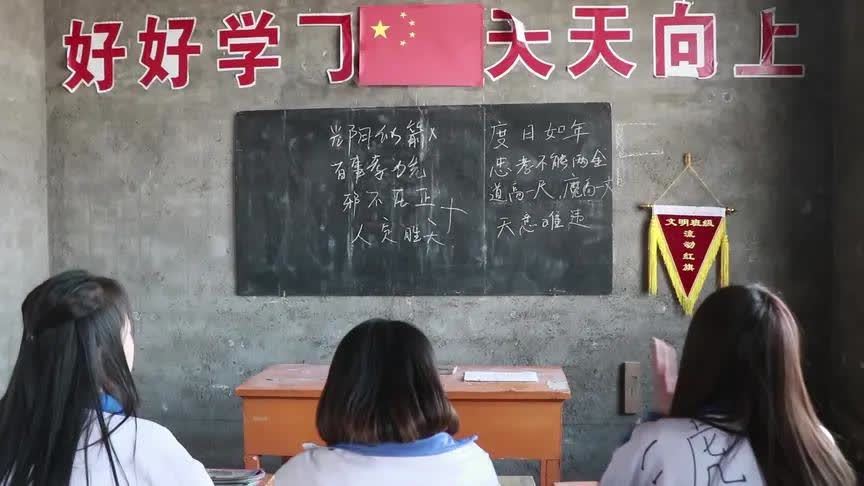 好好学习 天天向上
光阴似箭
百事孝为先
邪不压正
人定胜天
度日如年
忠孝不能两全
道高一尺,魔高一丈
天意难违
文明班级
流动红旗